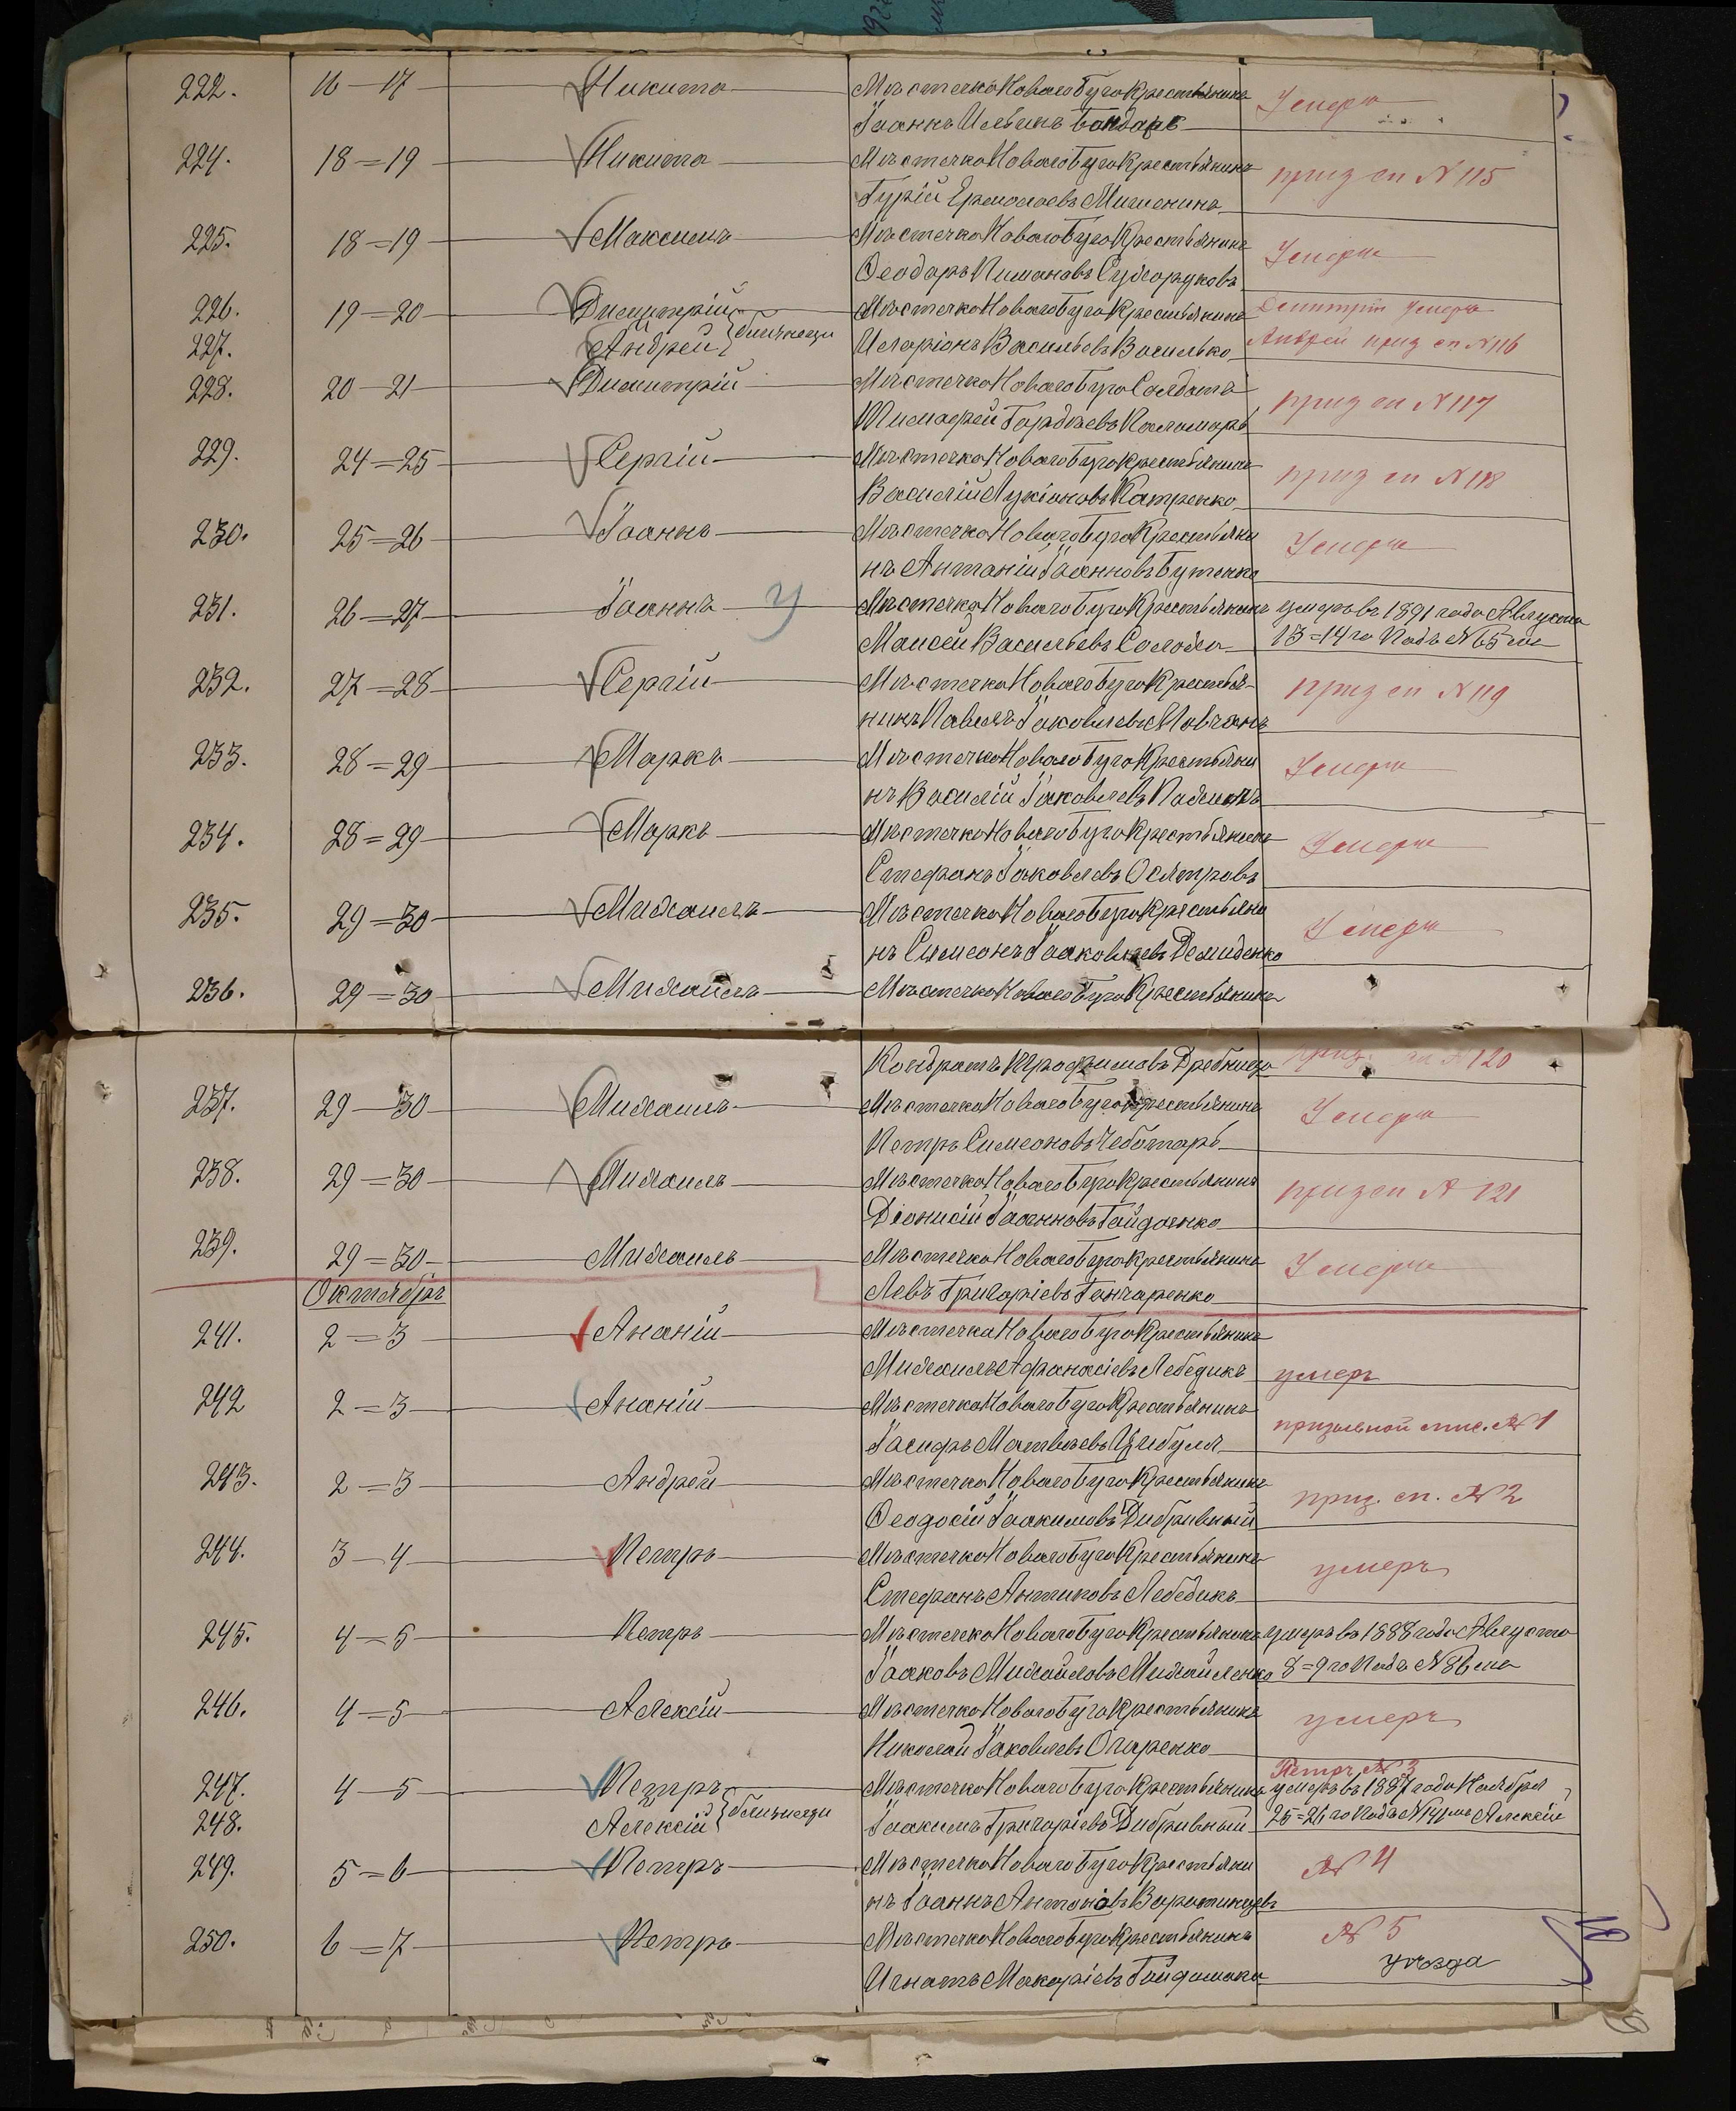 222. 16—17 Никита Мѣстечка Новаго Буга Крестьянинъ Умеръ
Іоаннъ Ильинъ Бондарь
224. 18=19 Никита Мѣстечка Новаго Буга Крестьянинъ приз сп № 115
Гурій Ермолаевъ Мишенинъ
225. 18=19 Максимъ Мѣстечка Новаго Буга Крестьянинъ Умеръ
Ѳеодоръ Сухоруковъ
226. 19=20 Димитрій Мѣстечка Новаго Буга Крестьянинъ Дмитрій Умеръ
227. Андрей близнецы Иларіонъ Васильевъ Василько Андрей приз сп № 116
228. 20—21 Димитрій Мѣстечка Новаго Буга Солдатъ приз сп № 117
Тимоѳей Гордѣевъ Паламарь
229. 24=25 Сергій Мѣстечка Новаго Буга Крестьянинъ приз сп № 118
Василій Лукіановъ Катренко
230. 25=26 Іоаннъ Мѣстечка Новаго Буга Крестьяни Умеръ
нъ Антоній Іоанновъ Бутенко
231. 26=27 Іоаннъ У Мѣстечка Новаго Буга Крестьянинъ умеръ въ 1891 года Августа
Моисей Васильевъ Солодка 13=14 го Подъ № 65 мъ
232. 27=28 Сергій Мѣстечка Новаго Буга Крестья- приз сп № 119
нинъ Павелъ Іаковлевъ Мовчанъ
233. 28=29 Марко Мѣстечка Новаго Буга Крестьяни Умеръ
нъ Василій Іаковлевъ
234. 28=29 Марко Мѣстечка Новаго Буга Крестьянинъ Умеръ
Стефанъ Іаковлевъ Осятровъ
235. 29=30 Михаилъ Мѣстечка Новаго Буга Крестьяни Умеръ
нъ Симеонъ Іаковлевъ Демиденко
236. 29=30 Михаилъ Мѣстечка Новаго Буга Крестьянинъ
Кондратъ Трофимовъ приз. сп № 120
237. 29—30 Михаилъ Мѣстечка Новаго Буга Крестьянинъ Умеръ
Петръ Симеоновъ Чеботарь
238. 29=30 Михаилъ Мѣстечка Новаго Буга Крестьянинъ приз сп № 121
Діонисій Іоанновъ Гайдаенко
239. 29=30 Михаилъ Мѣстечка Новаго Буга Крестьянинъ Умеръ
Октябрь Левъ Григоріевъ Ганчаренко
241. 2=3 Ананій Мѣстечка Новаго Буга Крестьянинъ
Михаилъ Афанасіевъ Лебедикъ умеръ
242 2=3 Ананій Мѣстечка Новаго Буга Крестьянинъ
Іосифъ Матвѣевъ Цибуля призывной спис. № 1
243. 2=3 Андрей Мѣстечка Новаго Буга Крестьянинъ приз. сп. № 2
Ѳеодосій Іоакимовъ Дибривный
244. 3—4 Петръ Мѣстечка Новаго Буга Крестьянинъ умеръ
Стефанъ Антиповъ Лебедикъ
245. 4=5 Петръ Мѣстечка Новаго Буга Крестьянинъ умеръ въ 1888 года Августа
Іаковъ Михайловъ Михайленко 8=9 го Подъ № 86 мъ
246. 4=5 Алексій Мѣстечка Новаго Буга Крестьянинъ умеръ
Николай Іаковлевъ Опаренко
Петръ № 3
247. 4—5 Петръ Мѣстечка Новаго Буга Крестьянинъ умеръ въ 1887 года Ноября
248. Алексій близнецы Іоакимъ Григоріевъ Дибривный 25=26 го Подъ Алексій
249. 5=6 Петръ Мѣстечка Новаго Буга Крестьяни № 4
нъ Іоаннъ Антоновъ Воротинцевъ
250. 6=7 Петръ Мѣстечка Новаго Буга Крестьянинъ № 5
Игнатъ Макаріевъ Гайдамака уѣзда